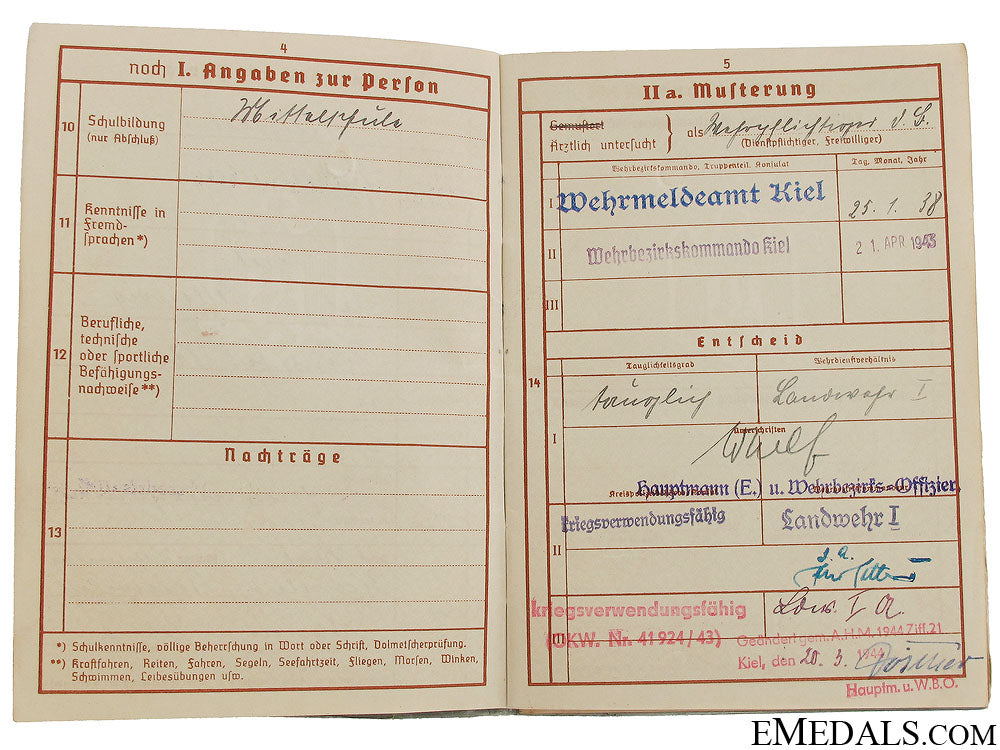 4
noch I. Angaben zur Person
10
Schulbildung
(nur Abschluß)
Mittelschule
11
Kenntnisse in
Fremd-
sprachen*)
12
Berufliche,
technische
oder sportliche
Befähigungs-
nachweise**)
Nachträge
13
*) Schulkenntnisse, völlige Beherrschung in Wort oder Schrift, Dolmetscherprüfung.
**) Kraftfahren, Reiten, Fahren, Segeln, Seefahrtzeit, Fliegen, Morsen, Winken,
Schwimmen, Leibesübungen usw.
5
II a. Musterung
Gemustert
Ärztlich untersucht
als Wehrpflichtiger d. B.
(Dienstpflichtiger, Freiwilliger)
Wehrbezirkskommando, Truppenteil, Konsulat
Tag, Monat, Jahr
I Wehrmeldeamt Kiel
25. 1. 38
II Wehrbezirkskommando Kiel
21. APR 1943
III
Entscheid
14
Tauglichkeitsgrad
Wehrdienstverhältnis
I
tauglich
Landwehr I
Unterschriften
Hauptmann (E.) u. Wehrbezirks-Offizier.
II
kriegsverwendungsfähig
Landwehr I
kriegsverwendungsfähig
Ldw. I A.
III
(OKW. Nr. 41924/43)
Geändert gem. A.H.M. 1944 Ziff. 21
Kiel, den 20. 3. 1944
Hauptm. u. W.B.O.
EMEDALS.COM